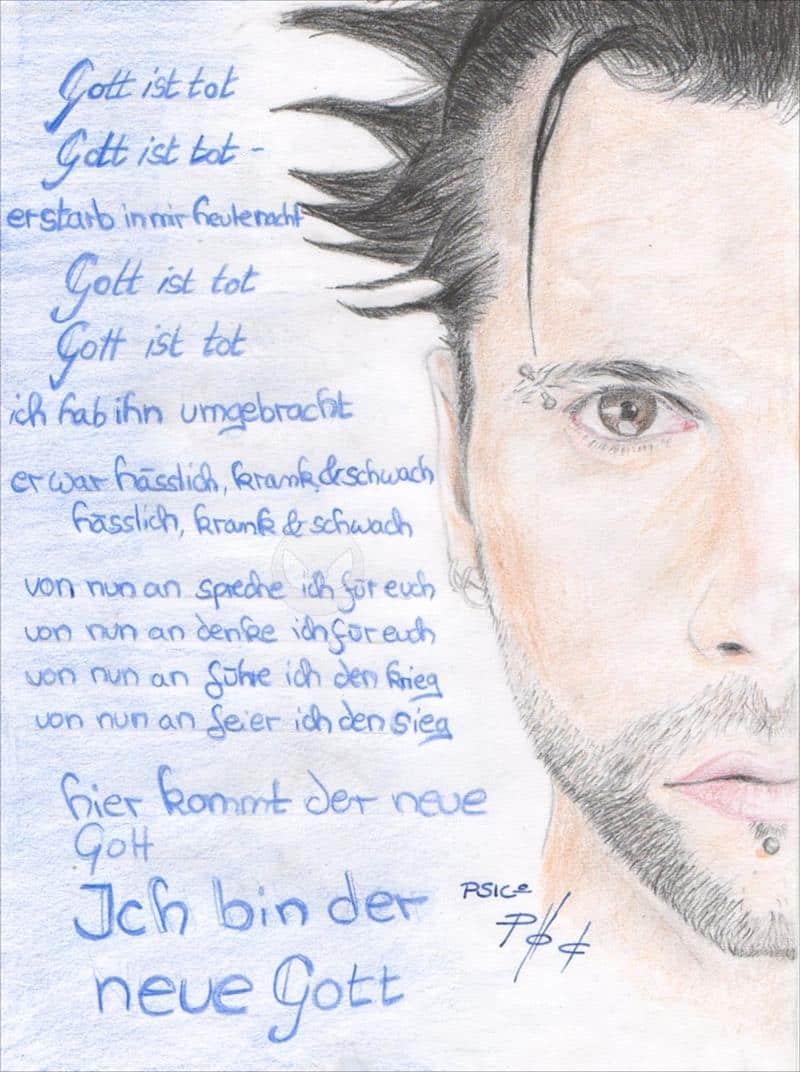 Gott ist tot
Gott ist tot -
er starb in mir heute nacht
Gott ist tot
Gott ist tot
ich hab ihn umgebracht
er war hässlich, krank & schwach
hässlich, krank & schwach
von nun an spreche ich für euch
von nun an denke ich für euch
von nun an führe ich den krieg
von nun an feier ich den sieg
hier kommt der neue
Gott
Ich bin der
neue Gott
PSICO